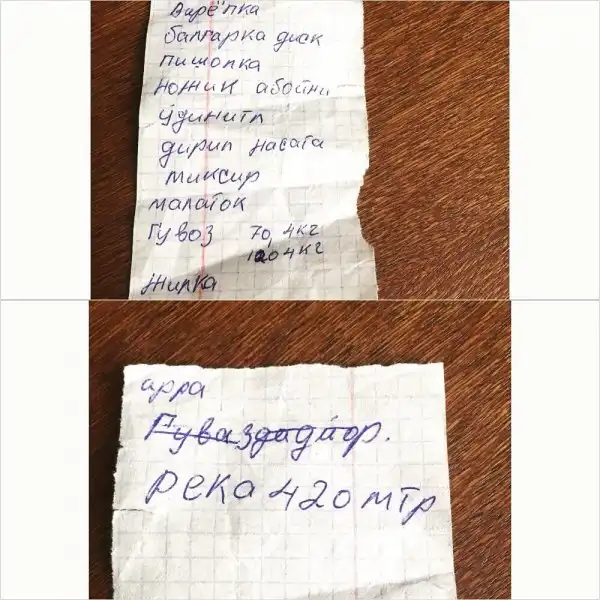 Варёпка
балгарка диск
пишопка
ножик абойни
удинитл
дирип насата
миксир
малаток
Гувоз 70, 4кг
120 4кг
жирка
арра
Гуваздадиор.
река 420 мтр